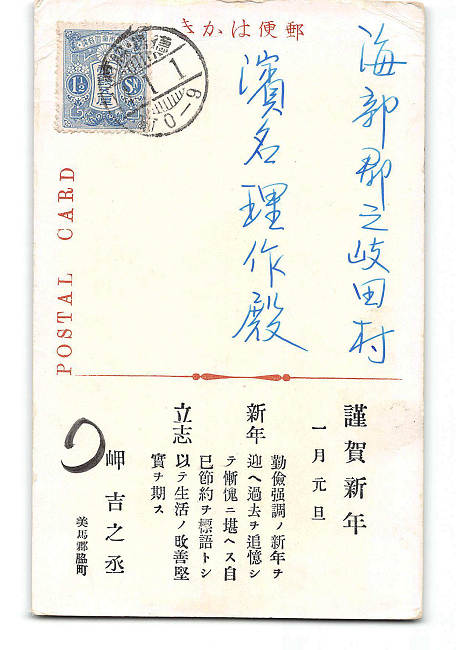 郵便はかき
海部郡之岐田村
濱名理作殿
POSTAL CARD
1½
1 1
0-9
謹賀新年
一月元旦
新年
勤儉强調ノ新年ヲ
迎ヘ過去ヲ追憶シ
テ慚愧ニ堪ヘス自
立志
已節約ヲ標語トシ
以テ生活ノ改善堅
實ヲ期ス
岬吉之丞
美馬郡脇町